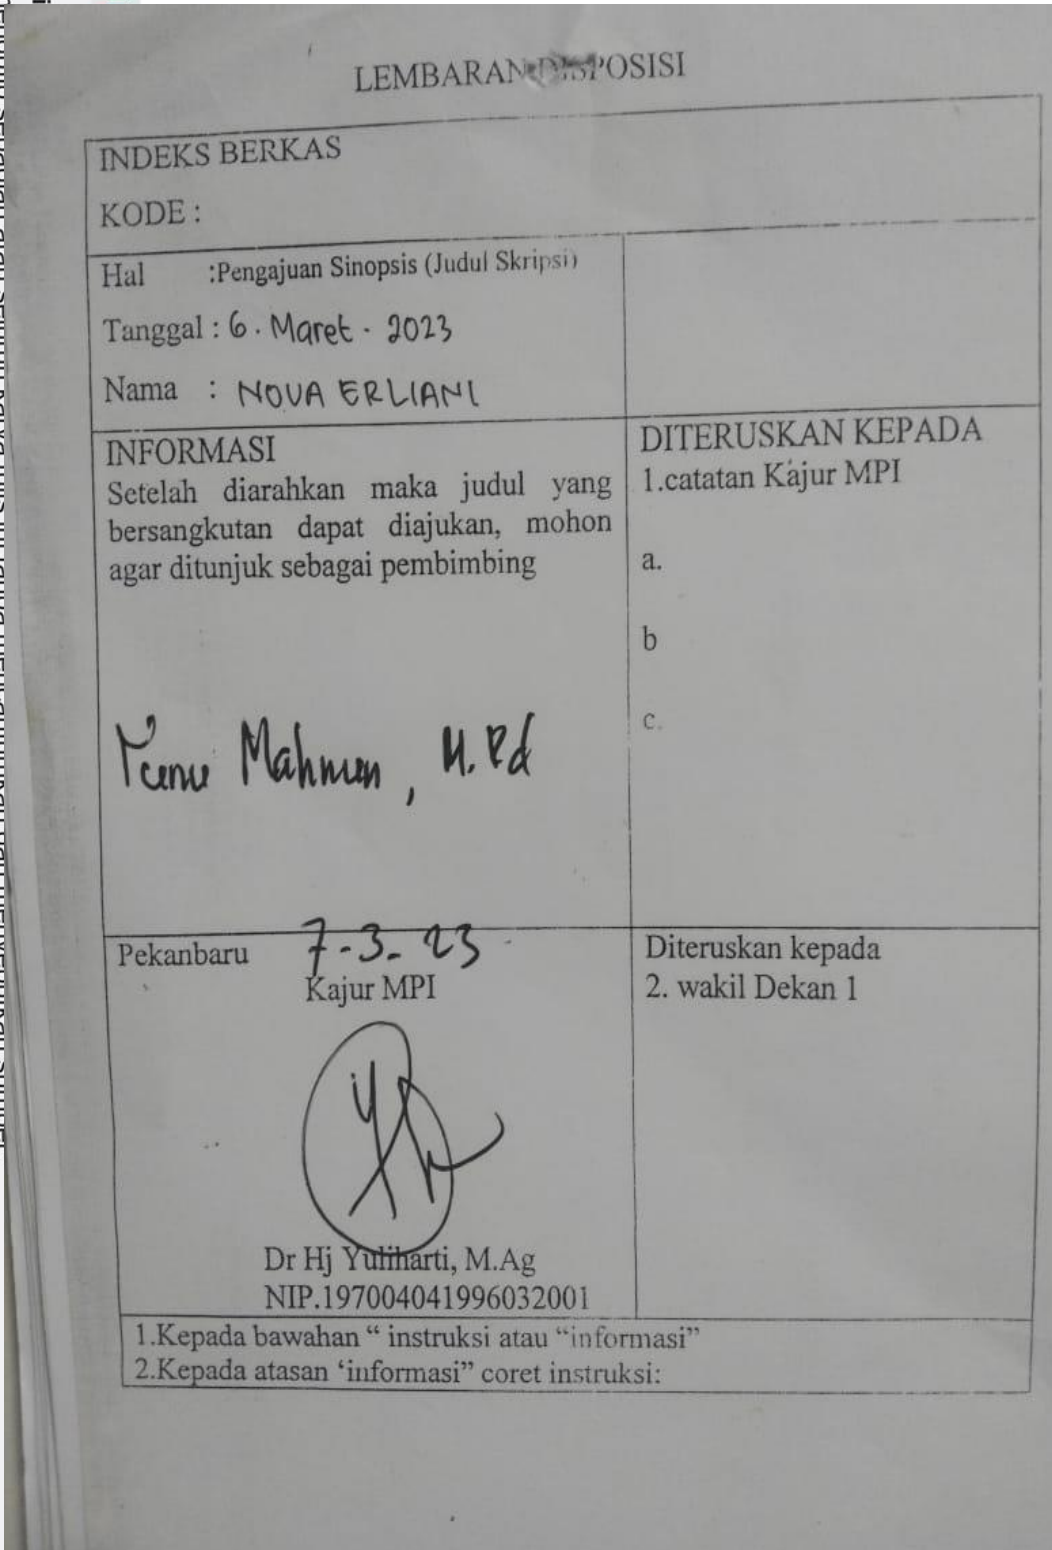 LEMBARAN DISPOSISI
INDEKS BERKAS
KODE :
Hal :Pengajuan Sinopsis (Judul Skripsi)
Tanggal : 6 . Maret . 2023
Nama : NOVA ERLIANI
INFORMASI
Setelah diarahkan maka judul yang
bersangkutan dapat diajukan, mohon
agar ditunjuk sebagai pembimbing
M.Pd
DITERUSKAN KEPADA
1.catatan Kajur MPI
a.
b
c.
Pekanbaru 7-3-23
Kajur MPI
Dr Hj Yuliharti, M.Ag
NIP.197004041996032001
Diteruskan kepada
2. wakil Dekan 1
1.Kepada bawahan “ instruksi atau “informasi”
2.Kepada atasan ‘informasi” coret instruksi: